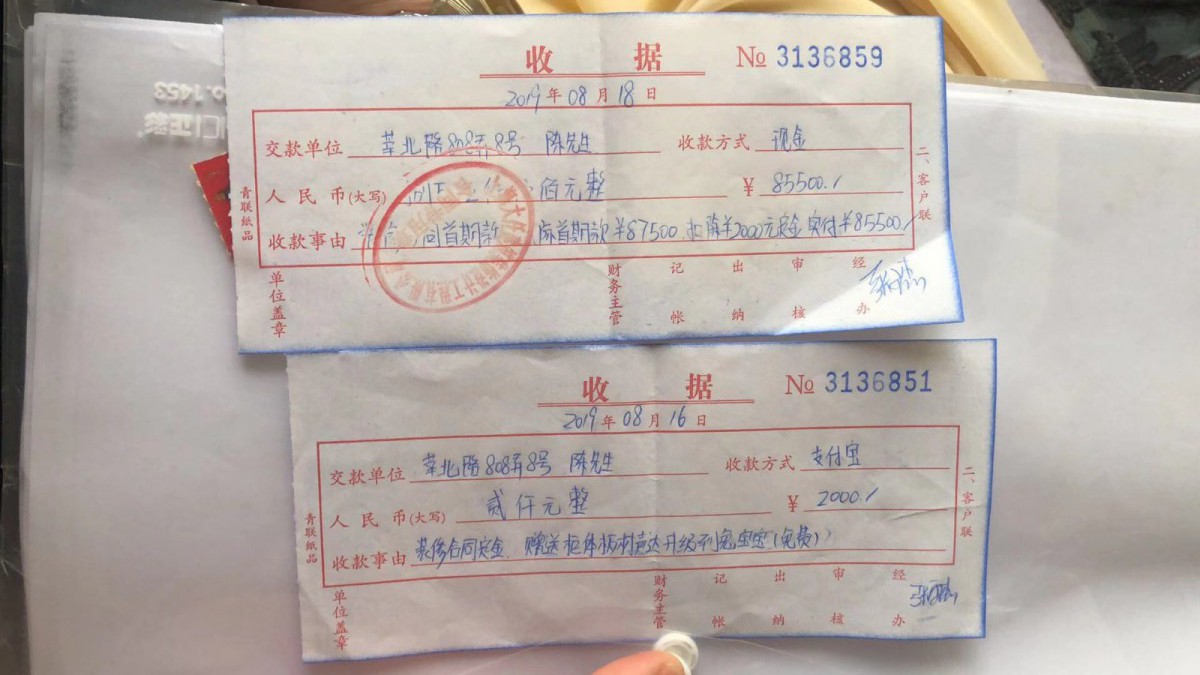 收 据 № 3136859
2019年08月18日
交款单位 莘北路808弄8号 陈先生 收款方式 现金
人民币(大写) 佰元整 ¥ 85500./
收款事由 同首期款 际首期款¥87500 扣除¥2000元定金 实付¥85500./
青联纸品
二、客户联
单位盖章 财务主管 记帐 出纳 审核 经办
收 据 № 3136851
2019年08月16日
交款单位 莘北路808弄8号 陈先生 收款方式 支付宝
人民币(大写) 贰仟元整 ¥ 2000./
收款事由 装修合同定金 赠送柜体板材 升级到兔宝宝(免费)
青联纸品
二、客户联
单位盖章 财务主管 记帐 出纳 审核 经办